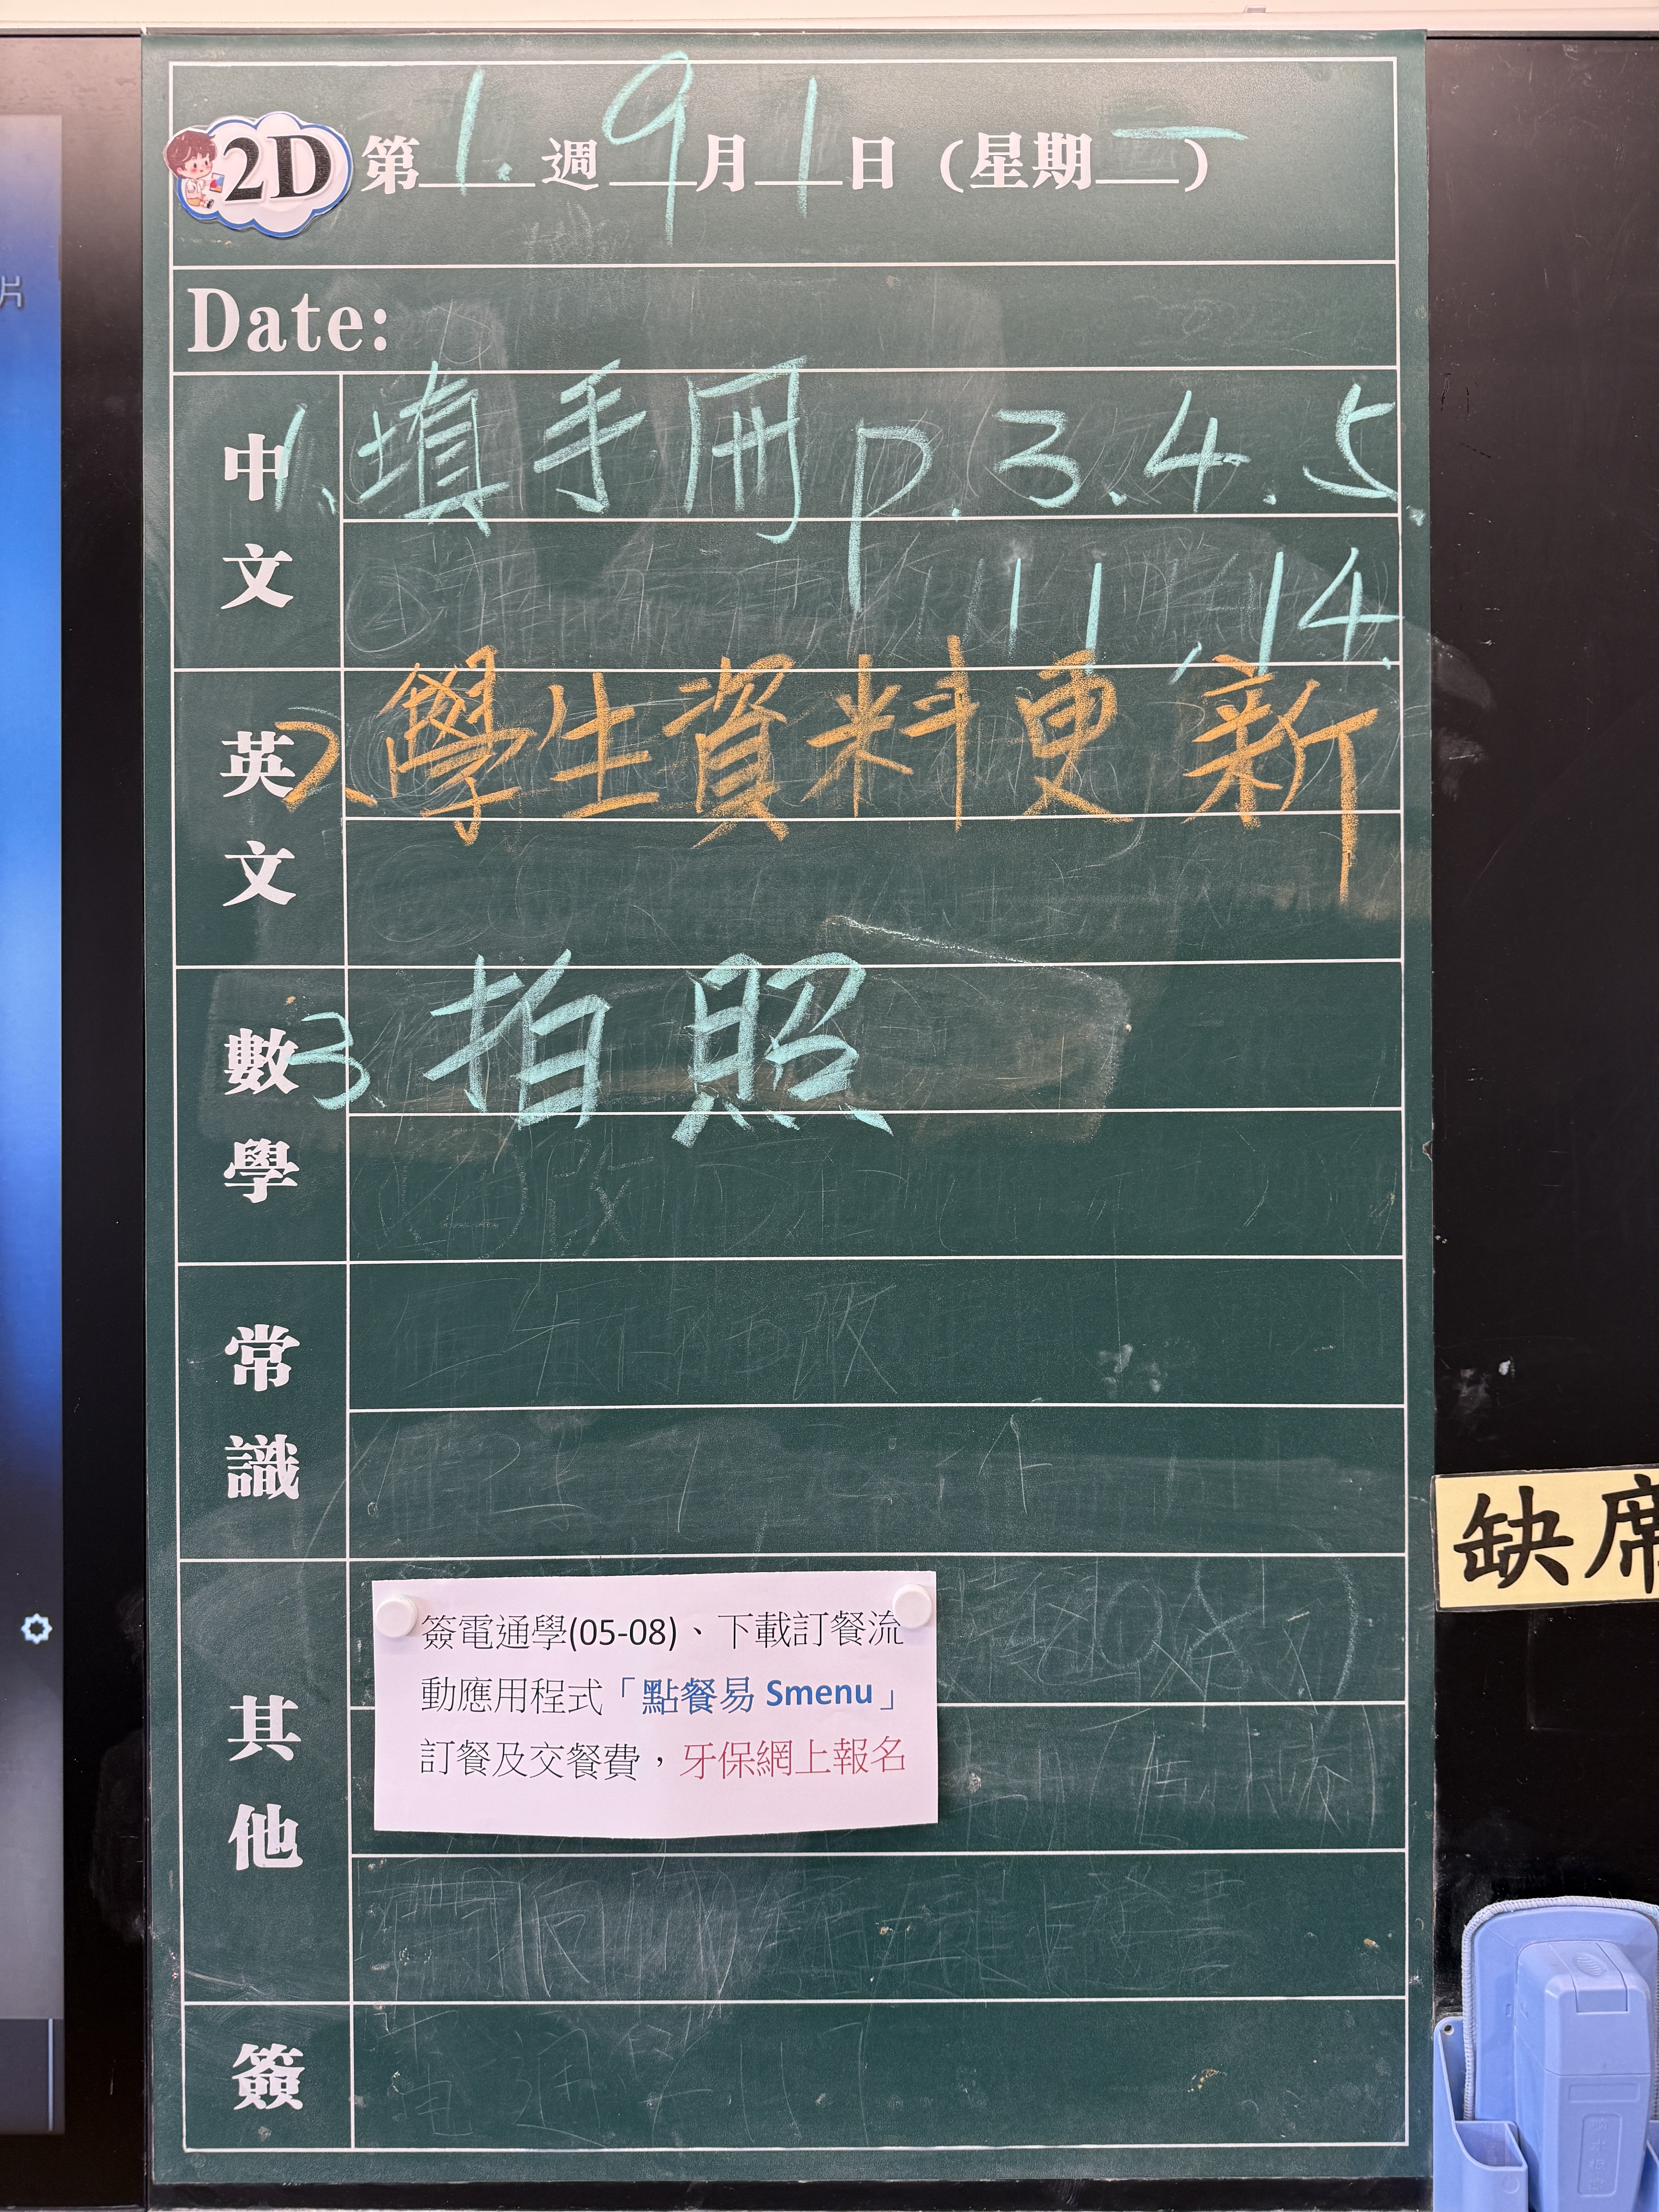 片
2D 第1.週9月1日(星期一)
Date:
中文
1. 填手冊 p.3.4.5
11,14.
英文
2. 學生資料更新
數學
3. 拍照
常識
其他
簽電通學(05-08)、下載訂餐流
動應用程式「點餐易 Smenu」
訂餐及交餐費，牙保網上報名
簽
缺席